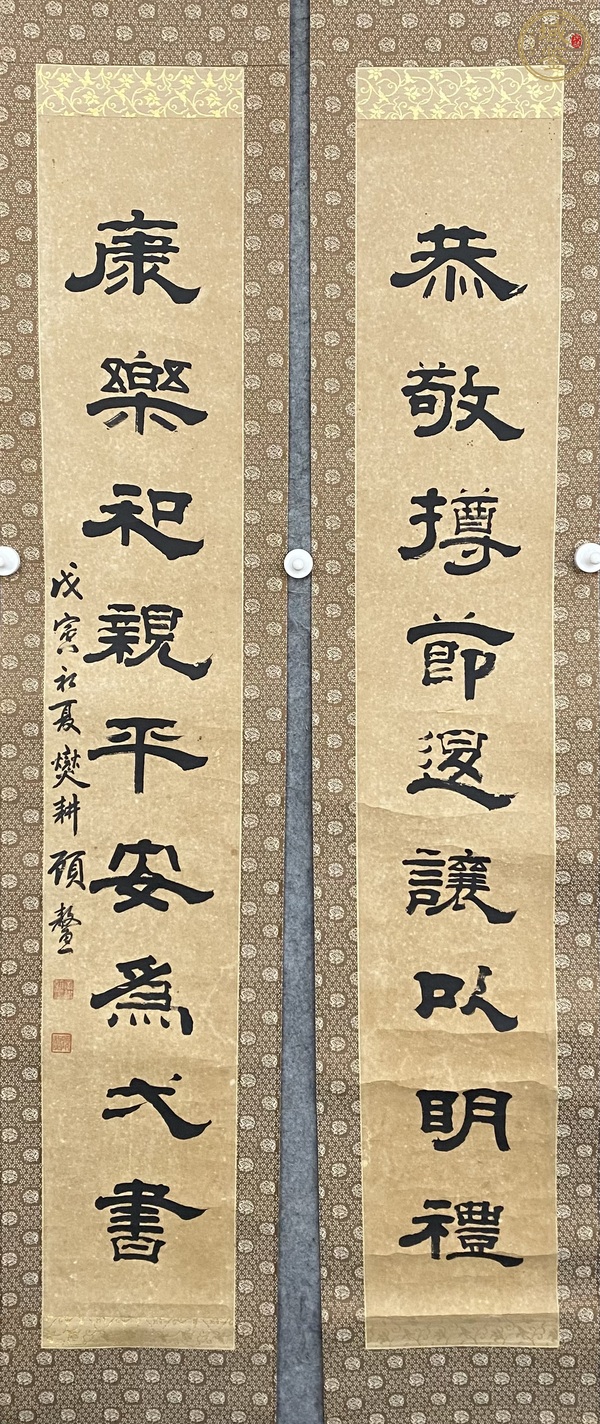 恭敬撙節退讓以明禮
康樂和親平安為弌書
戊寅初夏爕耕顧鼇